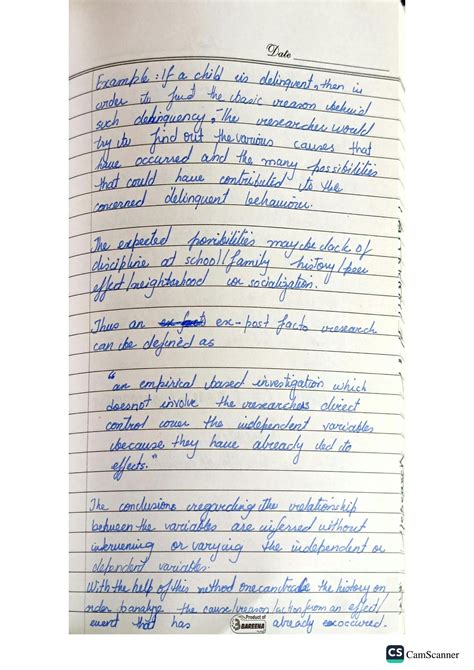 Date
Example: If a child is delinquent, then in
order to find the basic reason behind
such delinquency, the researcher would
try to find out the various causes that
have occurred and the many possibilities
that could have contributed to the
concerned delinquent behaviour.
The expected possibilities may be lack of
discipline at school/family history/peer
effect/neighborhood or socialization.
Thus an ex-post facto research
can be defined as
"an empirical based investigation which
doesnot involve the researchers direct
control over the independent variables
because they have already led to
effects."
The conclusions regarding the relationship
between the variables are inferred without
intervening or varying the independent or
dependent variables.
With the help of this method one can trace the history on,
analyze the cause/reason/action from an effect/
event that has already occured.
Product of
BAREENA
CS CamScanner